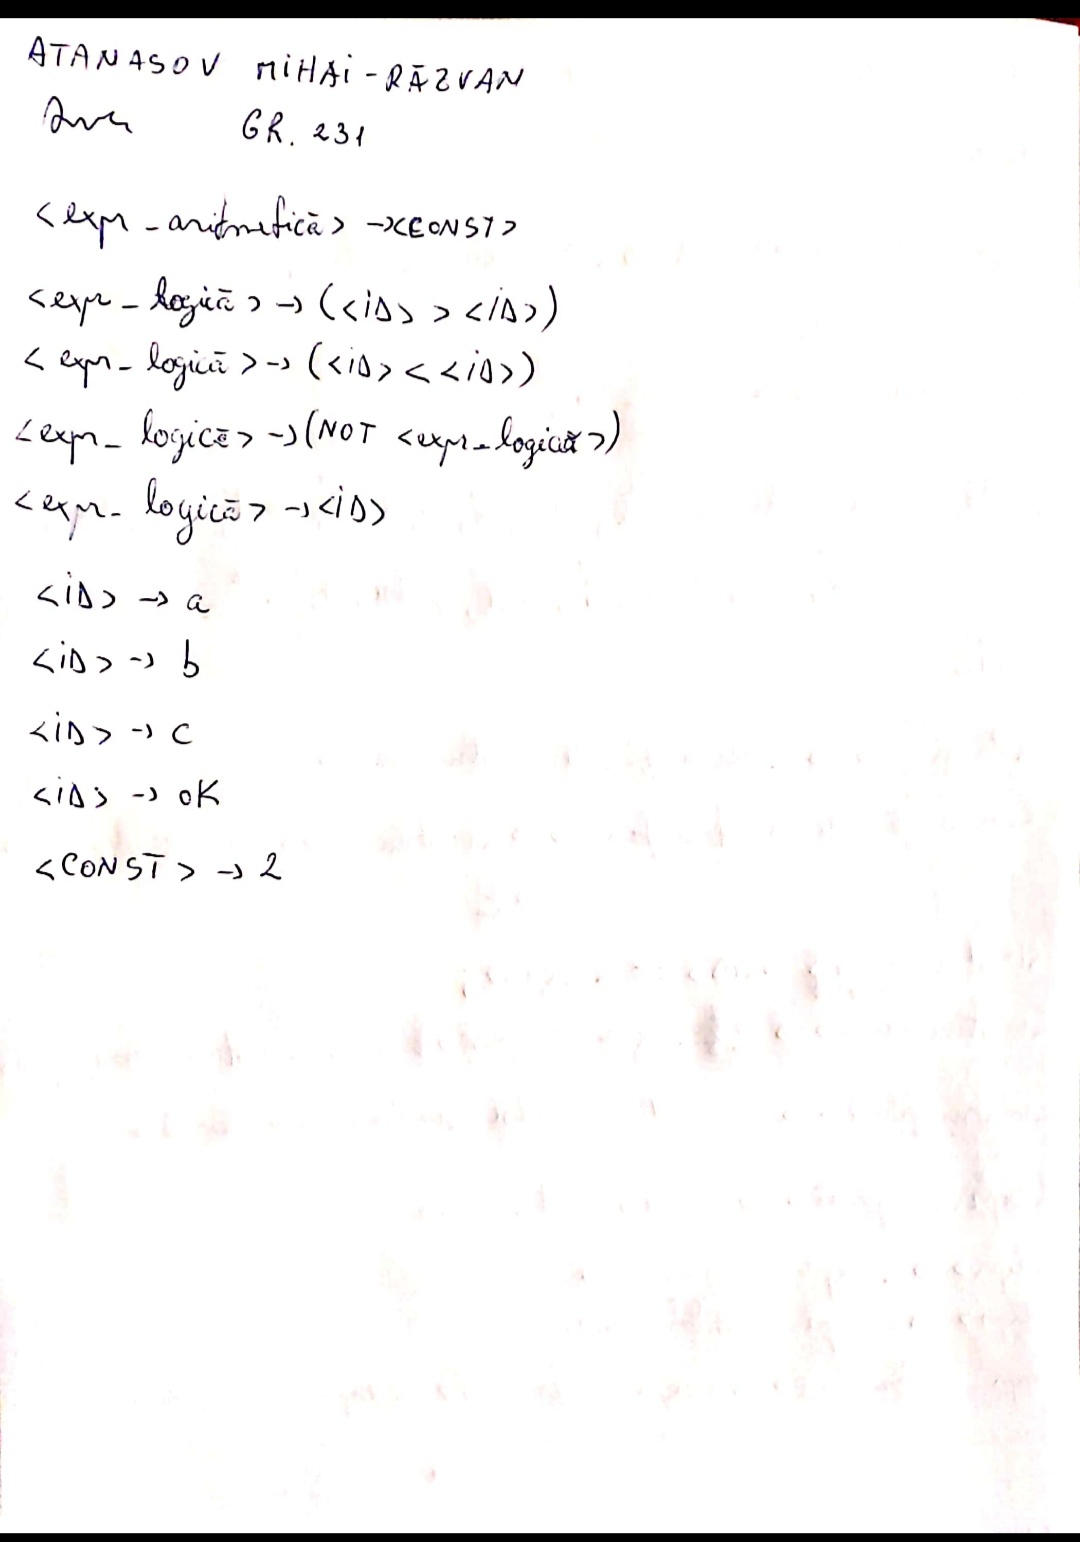 ATANASOV MIHAI-RĂZVAN
GR. 231
<expr_aritmetică> →<CONST>
<expr_logică> → (<ID> > <ID>)
<expr_logică> → (<ID> < <ID>)
<expr_logică> → (NOT <expr_logică>)
<expr_logică> → <ID>
<ID> → a
<ID> → b
<ID> → c
<ID> → ok
<CONST> → 2